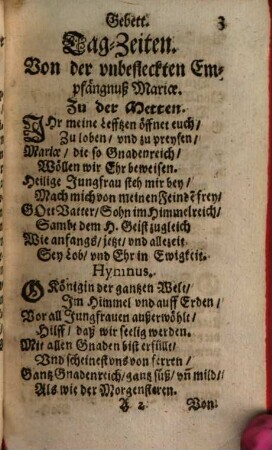 Gebett. 3
Tag-Zeiten.
Von der vnbefleckten Em-
pfängnuß Mariæ.
Zu der Metten.
IHr meine Lefftzen öffnet euch/
Zu loben/ vnd zu preysen/
Mariæ/ die so Gnadenreich/
Wöllen wir Ehr beweisen.
Heilige Jungfrau steh mir bey/
Mach mich von meinen Feindẽ frey/
GOtt Vatter/ Sohn im Himmelreich/
Sambt dem H. Geist zugleich
Wie anfangs/ jetzt/ vnd allezeit
Sey Lob/ vnd Ehr in Ewigkeit.
Hymnus.
O Königin der gantzen Welt/
Im Himmel vnd auff Erden/
Vor all Jungfrauen außerwöhlt/
Hilff/ daß wir seelig werden.
Mit allen Gnaden bist erfüllt/
Vnd scheinest vns von ferren/
Gantz Gnadenreich/ gantz süß/ vñ mild/
Als wie der Morgensteren.
J 2. Von: